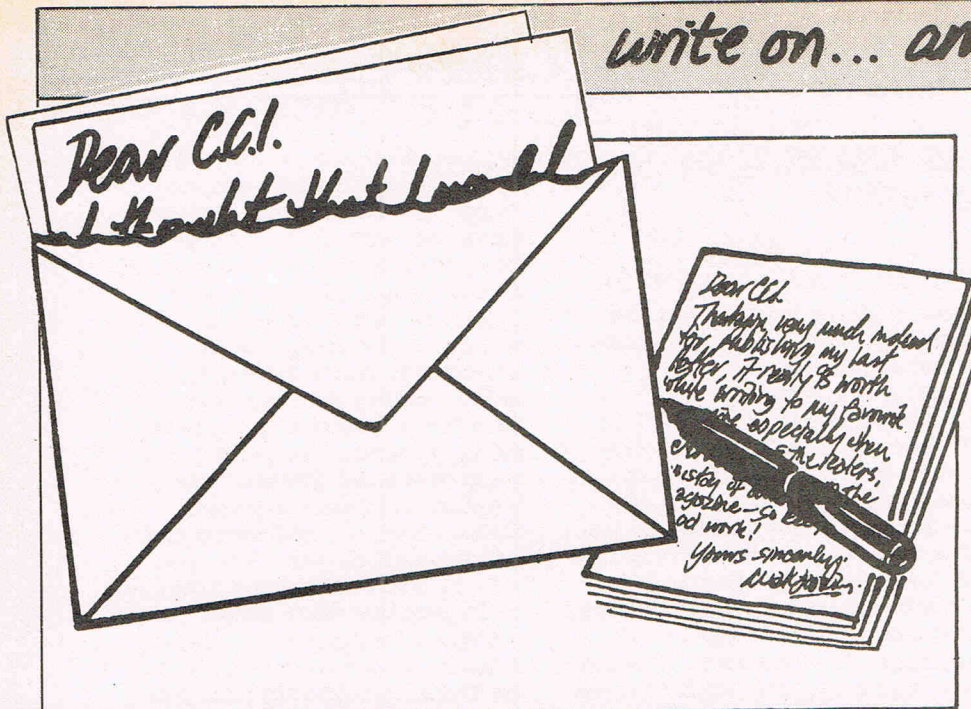 write on... an
Dear C.C.I.
I thought that I would
Dear CCI
Thankyou very much indeed
for publishing my last
letter, it really is worth
while writing to my favourit
especially when
the testers,
the
so
work!
Yours sincerely,